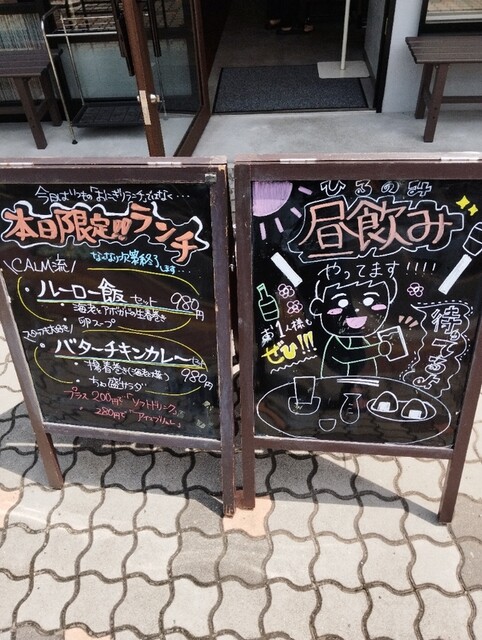 今日はいつもの「おにぎりランチ」ではなく…
本日限定!!ランチ
なくなり次第終了します…
\CALM流/
・ルーロー飯セット 980円
・海老とアボカドの生春巻き
・卵スープ
・バターチキンカレーセット 980円
・揚春巻き(海老と
ちょい盛サラダ
プラス 200円で「ソフトドリンク」
280円で「
ひるのみ
昼飲み
やってます!!!!
お1人様も
ぜひ!!!
待ってるよ